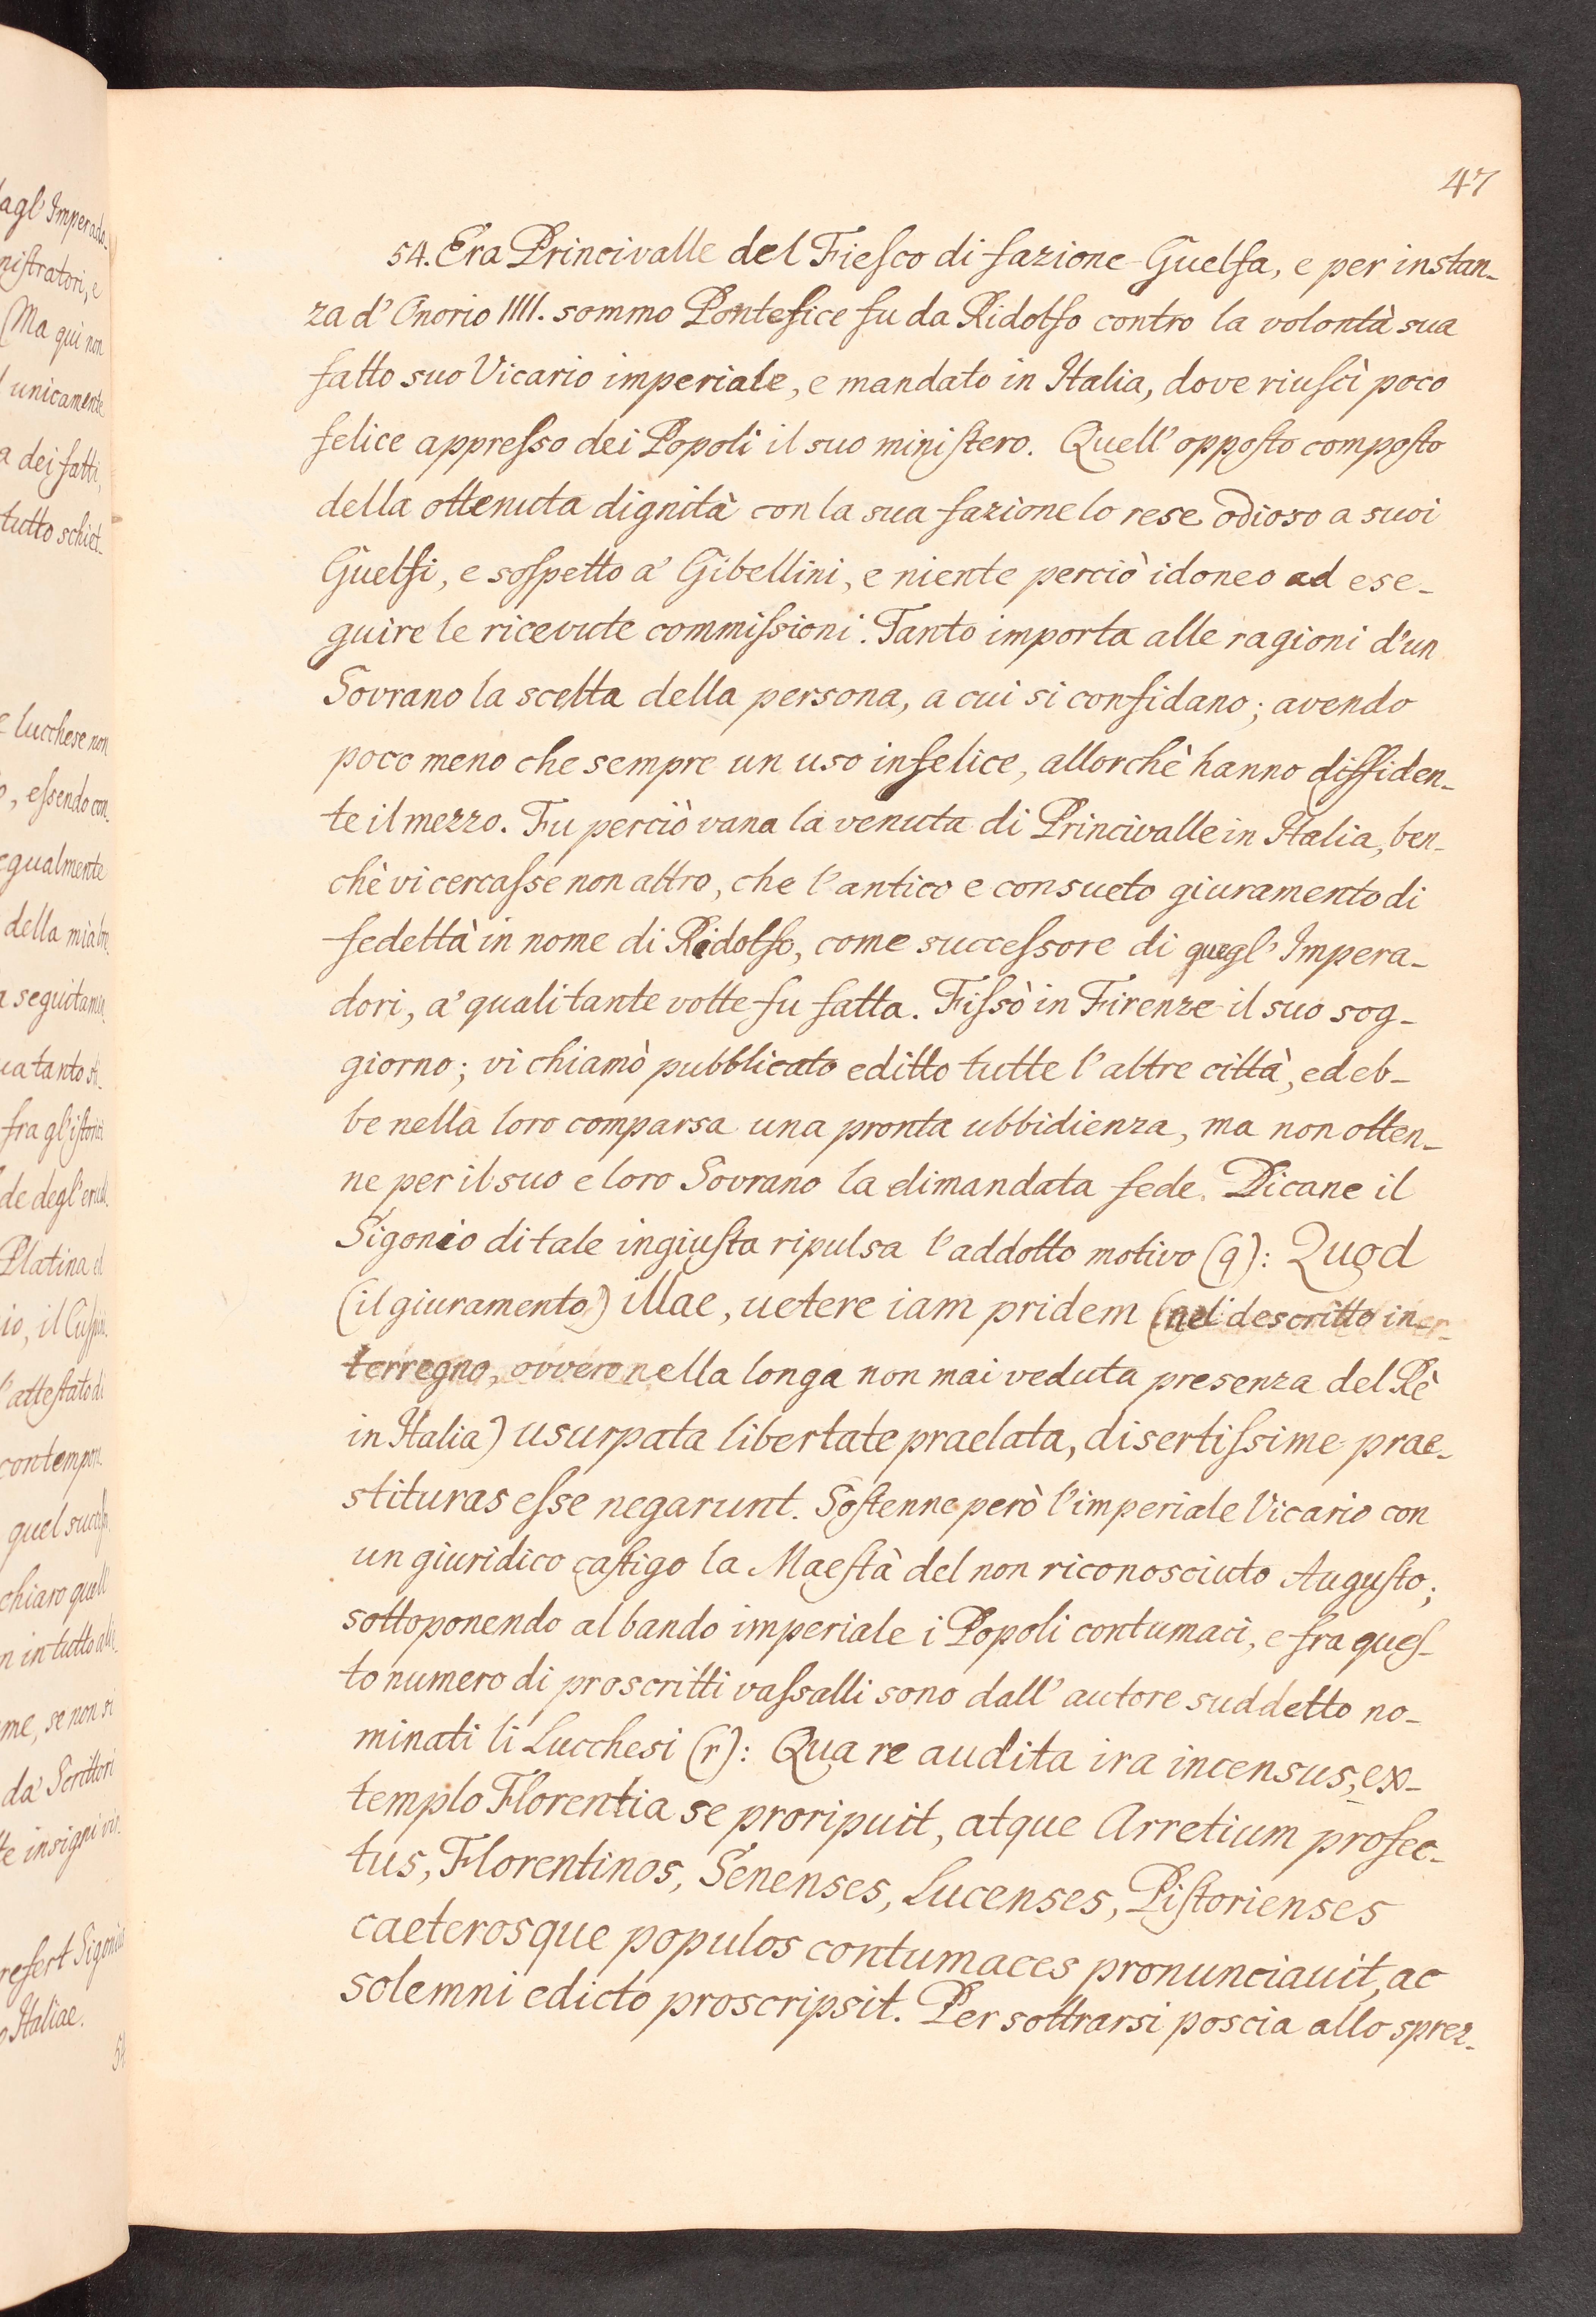 47
54. Era Princivalle del Fiesco di fazione Guelfa, e per instan-
za d' Onorio IIII. sommo Pontefice fu da Ridolfo contro la volontà sua
fatto suo Vicario imperiale, e mandato in Italia, dove riuscì poco
felice appresso dei Popoli il suo ministero. Quell' opposto composto
della ottenuta dignità con la sua fazione lo rese odioso a suoi
Guelfi, e sospetto a' Gibellini, e niente perciò idoneo ad ese-
guire le ricevute commissioni. Tanto importa alle ragioni d'un
Sovrano la scelta della persona, a cui si confidano; avendo
poco meno che sempre un uso infelice, allorchè hanno diffiden-
te il mezzo. Fu perciò vana la venuta di Princivalle in Italia, ben-
chè vi cercasse non altro, che l'antico e consueto giuramento di
fedeltà in nome di Ridolfo, come successore di quegl' Impera-
dori, a' quali tante volte fu fatta. Fissò in Firenze il suo sog-
giorno; vi chiamò pubblicato editto tutte l'altre città, ed eb-
be nella loro comparsa una pronta ubbidienza, ma non otten-
ne per il suo e loro Sovrano la dimandata fede. Dicane il
Sigonio di tale ingiusta ripulsa l'addotto motivo (q): Quod
(il giuramento) illae, uetere iam pridem (nel descritto in-
terregno, ovvero nella longa non mai veduta presenza del Rè
in Italia) usurpata libertate praelata, disertissime prae-
stituras esse negarunt. Sostenne però l'imperiale Vicario con
un giuridico castigo la Maestà del non riconosciuto Augusto;
sottoponendo al bando imperiale i Popoli contumaci, e fra ques-
to numero di proscritti vassalli sono dall' autore suddetto no-
minati li Lucchesi (r): Qua re audita ira incensus, ex-
templo Florentia se proripuit, atque Arretium profec-
tus, Florentinos, Senenses, Lucenses, Pistorienses
caeterosque populos contumaces pronunciauit, ac
solemni edicto proscripsit. Per sottrarsi poscia allo sprez-